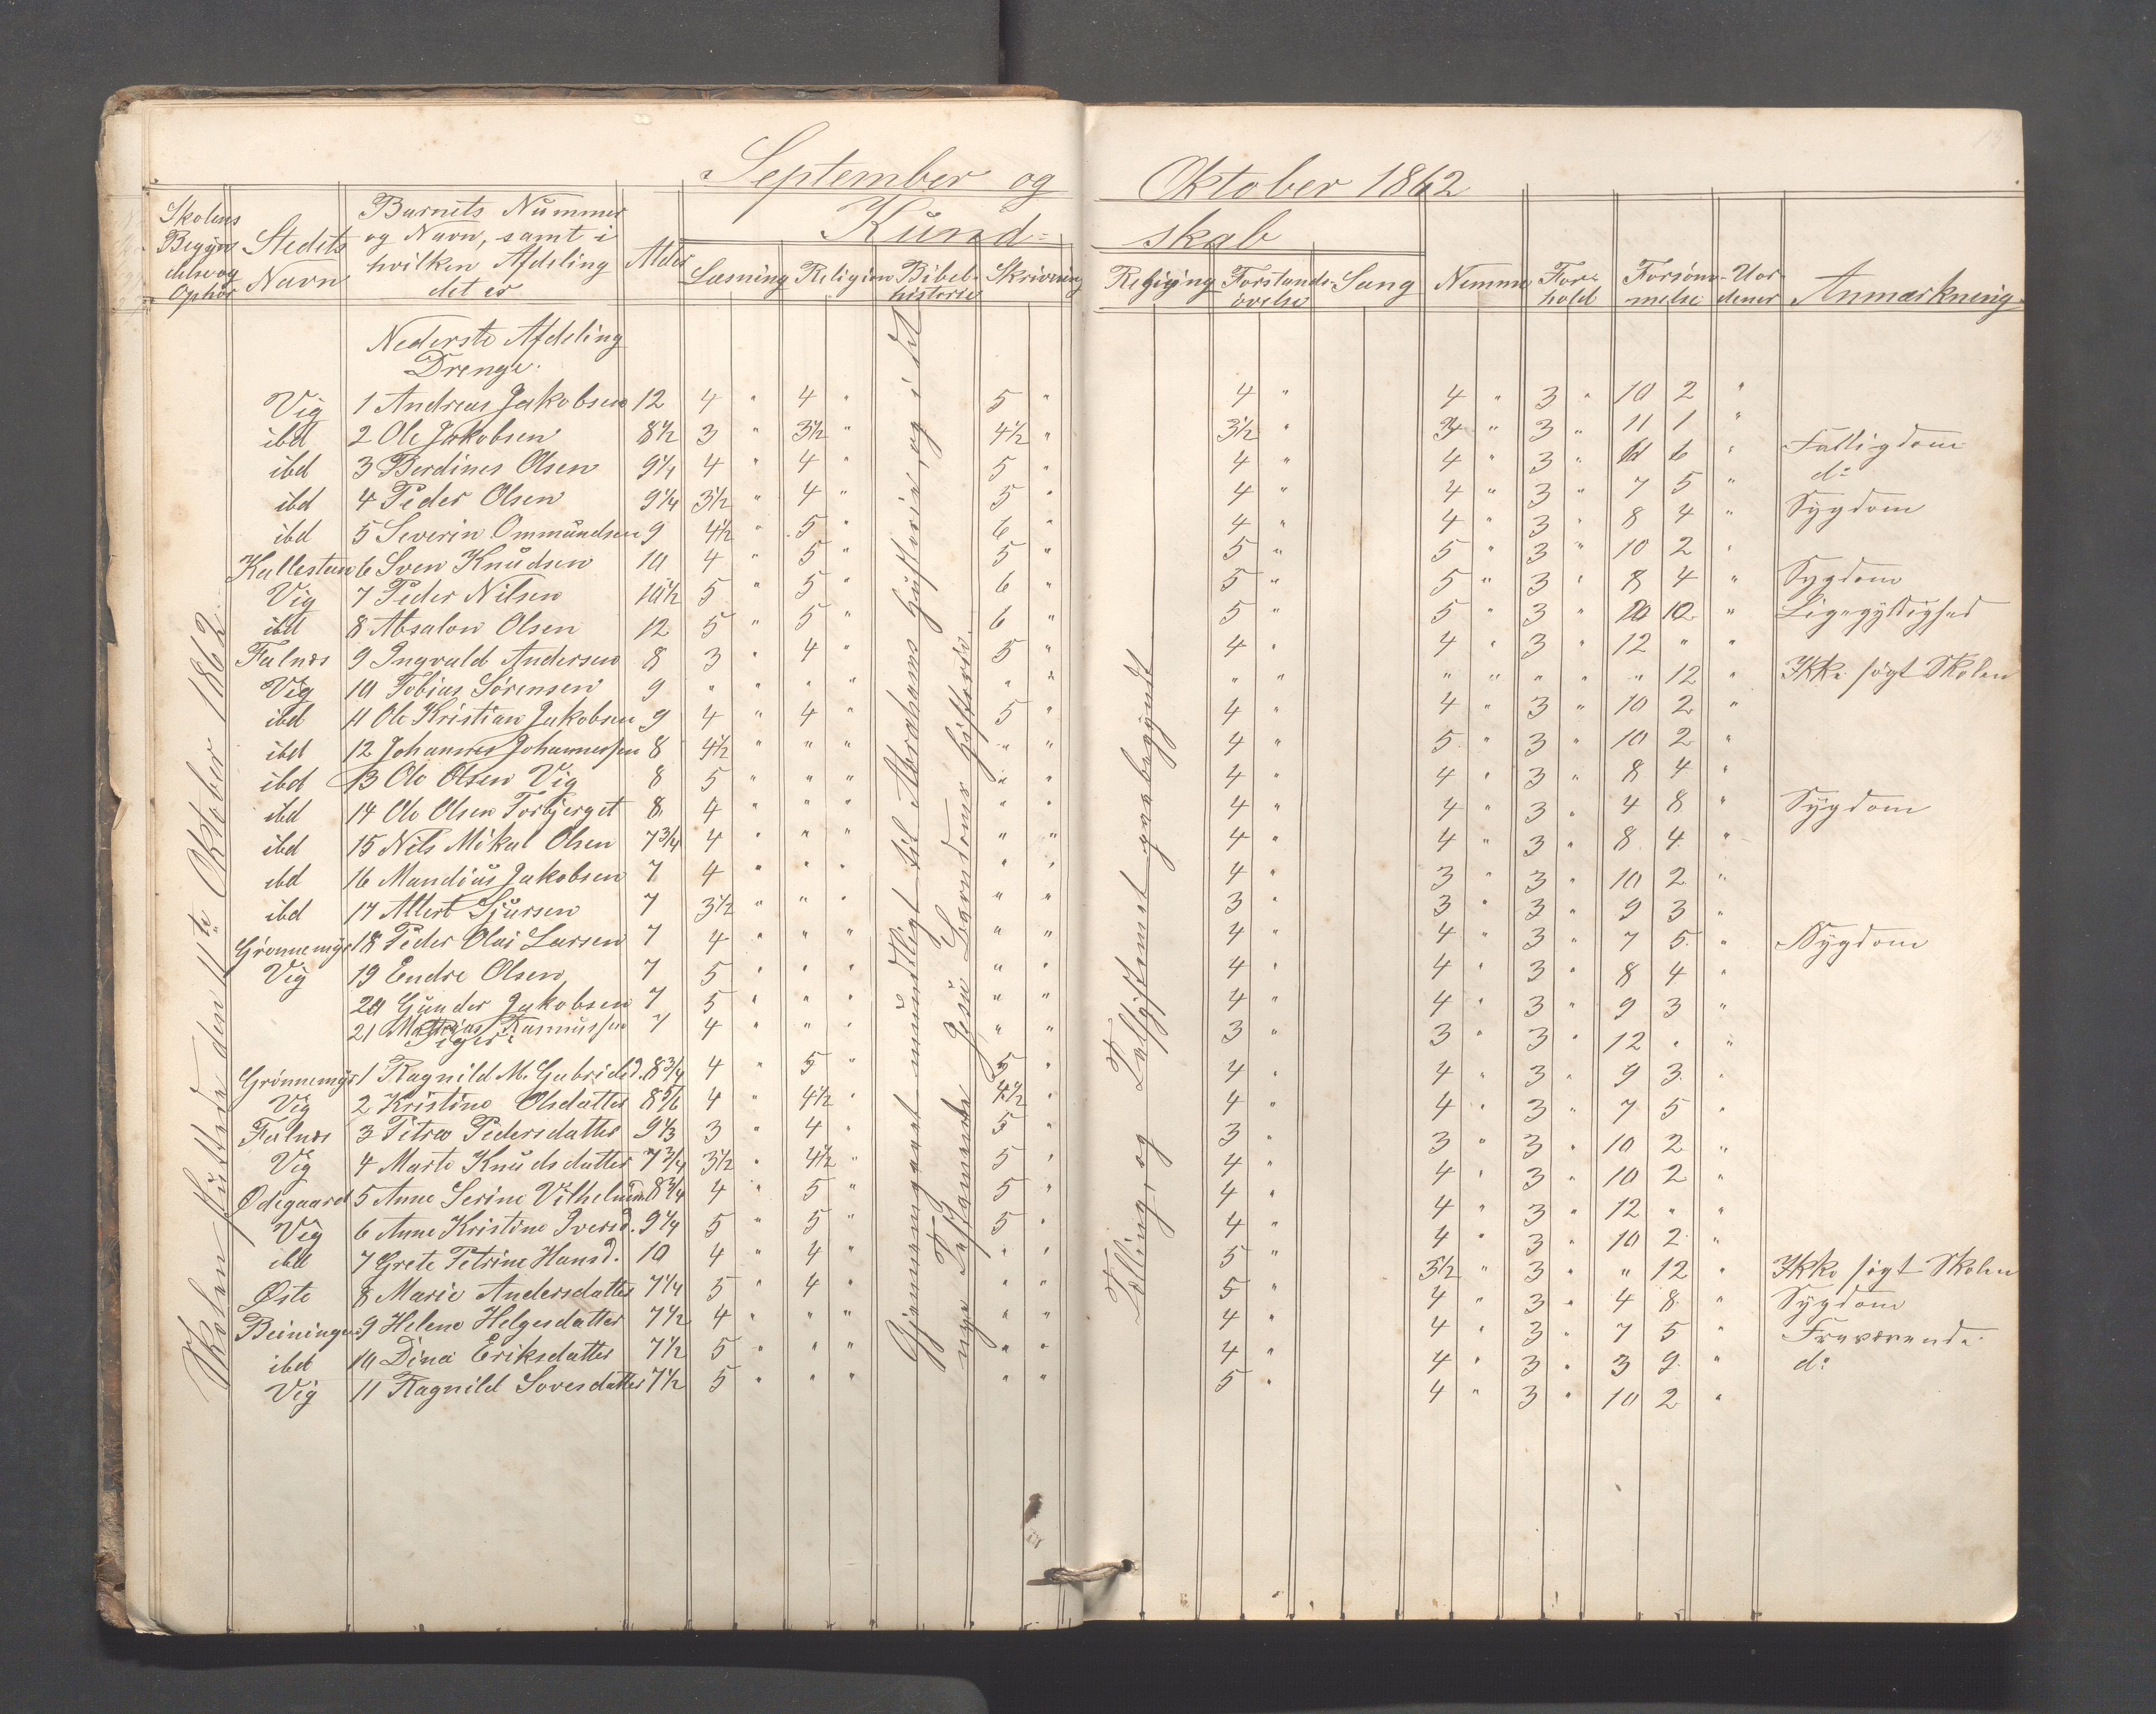 September og Oktober 1862
Skolens Begyndelse og Ophør | Stedets Navn | Barnets Nummer og Navn, samt i hvilken Afdeling det er | Alder | Kund-skab | Læsning | Religion | Bibelhistorie | Skrivning | Regning | Forstandsøvelse | Sang | Nemme | Forhold | Forsømmelse | Uordener | Anmærkning
Nederste Afdeling
Drenge.
Vig 1 Andreas Jakobsen 12 4 " 4 " 5 " 4 " 4 " 3 " 10 2 "
ibd 2 Ole Jakobsen 8 1/2 3 " 3 1/2 " 4 1/2 " 3 1/2 " 3 " 3 " 11 1 "
ibd 3 Berdines Olsen 9 1/4 4 " 4 " 5 " 4 " 4 " 3 " 6 6 " Fattigdom
ibd 4 Peder Olsen 9 1/4 3 1/2 " 4 " 5 " 4 " 4 " 3 " 7 5 " do
ibd 5 Severin Ommundsen 9 4 1/2 " 5 " 6 " 4 " 4 " 3 " 8 4 " Sygdom
Kallestein 6 Sven Knudsen 10 4 " 5 " 5 " 5 " 5 " 3 " 10 2 "
Vig 7 Peder Nilsen 10 1/2 5 " 5 " 6 " 5 " 5 " 3 " 8 4 " Sygdom
ibd 8 Absalon Olsen 12 5 " 5 " 6 " 5 " 5 " 3 " 10 " Ligegyldighed
Falnes 9 Ingvald Andersen 8 3 " 4 " 5 " 4 " 4 " 3 " 12 " "
Vig 10 Tobias Sørensen 9 " " " " " " " " " " " " " 12 " Ikke søgt Skolen
ibd 11 Ole Kristian Jakobsen 9 4 " 4 " 5 " 4 " 4 " 3 " 10 2 "
ibd 12 Johannes Johannessen 8 4 1/2 " " " " " 4 " 5 " 3 " 10 2 "
ibd 13 Ole Olsen Vig 8 5 " " " " " 4 " 4 " 3 " 8 4 "
ibd 14 Ole Olsen Torbjerget 8 4 " " " " " 4 " 4 " 3 " 4 8 " Sygdom
ibd 15 Nils Mikal Olsen 7 3/4 4 " " " " " 4 " 4 " 3 " 8 4 "
ibd 16 Mandius Jakobsen 7 4 " " " " " 4 " 3 " 3 " 10 2 "
ibd 17 Allert Sjursen 7 3 1/2 " " " " " 3 " 3 " 3 " 9 3 "
Grønnemyr 18 Peder Olai Larsen 7 4 " " " " " 4 " 4 " 3 " 7 5 " Sygdom
Vig 19 Endre Olsen 7 5 " " " " " 4 " 4 " 3 " 8 4 "
20 Gunder Jakobsen 7 5 " " " " " 4 " 4 " 3 " 9 3 "
21 Mathias Rasmussen 7 4 " " " " " 3 " 3 " 3 " 12 " "
Piger:
Grønnemyr 1 Ragnild M. Gabrielsd. 8 3/4 4 " 5 " 5 " 4 " 4 " 3 " 9 3 "
Vig 2 Kristine Olsdatter 8 5/6 4 " 4 1/2 " 4 1/2 " 4 " 4 " 3 " 7 5 "
Falnes 3 Petra Pedersdatter 9 1/3 3 " 4 " 5 " 3 " 3 " 3 " 10 2 "
Vig 4 Marte Knudsdatter 7 3/4 3 1/2 " 4 1/2 " 5 " 4 " 4 " 3 " 10 2 "
Ødegaard 5 Anne Serine Vilhelmsd 8 3/4 4 " 5 " 5 " 4 " 4 " 3 " 12 " "
Vig 6 Anne Kristine Iversd. 9 1/4 5 " 5 " 5 " 4 " 4 " 3 " 10 2 "
ibd 7 Grete Petrine Hansd. 10 4 " 4 " " " 5 " 3 1/2 " 3 " " 12 " Ikke søgt Skolen
Øste 8 Marie Andersdatter 7 1/4 5 " 4 " " " 5 " 4 " 3 " 4 8 " Sygdom
Beiningen 9 Helene Helgesdatter 7 1/2 4 " " " " " 4 " 4 " 3 " 7 5 " Fraværende
ibd 10 Dina Eriksdatter 7 1/2 5 " " " " " 4 " 4 " 3 " 3 9 " do
Vig 11 Ragnild Soresdatter 7 1/2 5 " " " " " 5 " 4 " 3 " 10 2 "
Skolen sluttede den 11te Oktober 1862.
Gjennemgaaet mundtligt til Abrahams Historie, og i det
nye Testamente Jesu Barndoms Historie.
Tælling, og Talsystemet gjenbegyndt